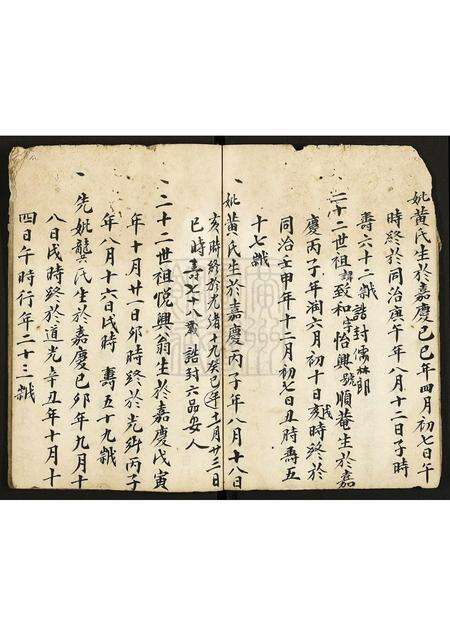 妣黄氏生於嘉慶己巳年四月初七日午
時終於同治庚午年八月十二日子時
壽六十二歲 誥封儒林郎
二十二世祖諱致和字怡興號順菴生於嘉
慶丙子年潤六月初十日亥時終於
同治壬申年十二月初七日丑時壽五
十七歲
妣黄氏生於嘉慶丙子年八月十八日
亥時終於光緒十九癸巳年十二月廿三日
巳時壽七十八歲 誥封六品安人
二十二世祖悅興翁生於嘉慶戊寅
年十月廿一日卯時終於光緒丙子
年八月十六日戌時 壽五十九歲
先妣龔氏生於嘉慶己卯年九月十
八日戌時終於道光辛丑年十月十
四日午時行年二十三歲